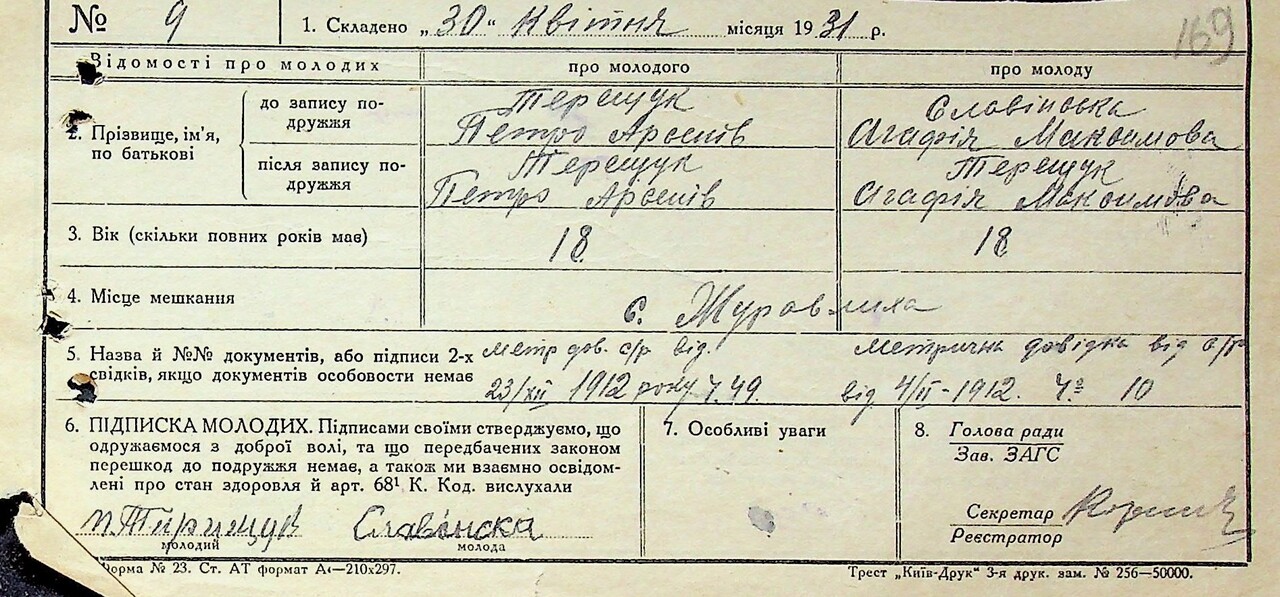 № 9 1. Складено „30" Квітня місяця 1931 р. 169
Відомості про молодих про молодого про молоду
2. Прізвище, ім'я, по батькові
до запису по-
дружжя
Терещук
Петро Арсенів
Славінська
Агафія Максимова
після запису по-
дружжя
Терещук
Петро Арсенів
Терещук
Агафія Максимова
3. Вік (скільки повних років має) 18 18
4. Місце мешкання с. Журавлиха
5. Назва й №№ документів, або підписи 2-х
свідків, якщо документів особовости немає
метр дов. с/р від.
23/XII 1912 року ч. 49.
Метрична довідка від с/р
від 4/II-1912. Ч 10
6. ПІДПИСКА МОЛОДИХ. Підписами своїми стверджуємо, що
одружаємося з доброї волі, та що передбачених законом
перешкод до подружжя немає, а також ми взаємно освідом-
лені про стан здоровля й арт. 68¹ К. Код. вислухали
п. Тирищук Славінска
молодий молода
7. Особливі уваги
8. Голова ради
Зав. ЗАГС
Секретар
Реєстратор
Форма № 23. Ст. АТ формат А4—210х297. Трест „Київ-Друк" 3-я друк. зам. № 256—50000.